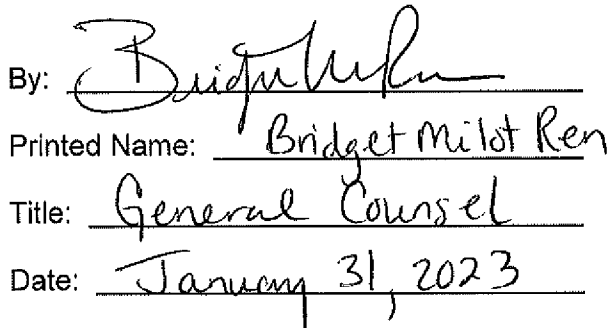 By: Bridget M Ren
Printed Name: Bridget Milot Ren
Title: General Counsel
Date: January 31, 2023